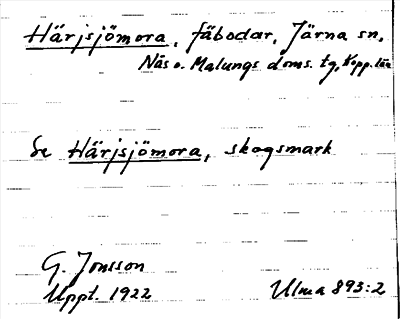 Härjsjömora, fäbodar, Järna sn,
Näs o. Malungs doms. tg, Kopp. län
Se Härjsjömora, skogsmark
G. Jonsson
Uppt. 1922 Ulma 893:2